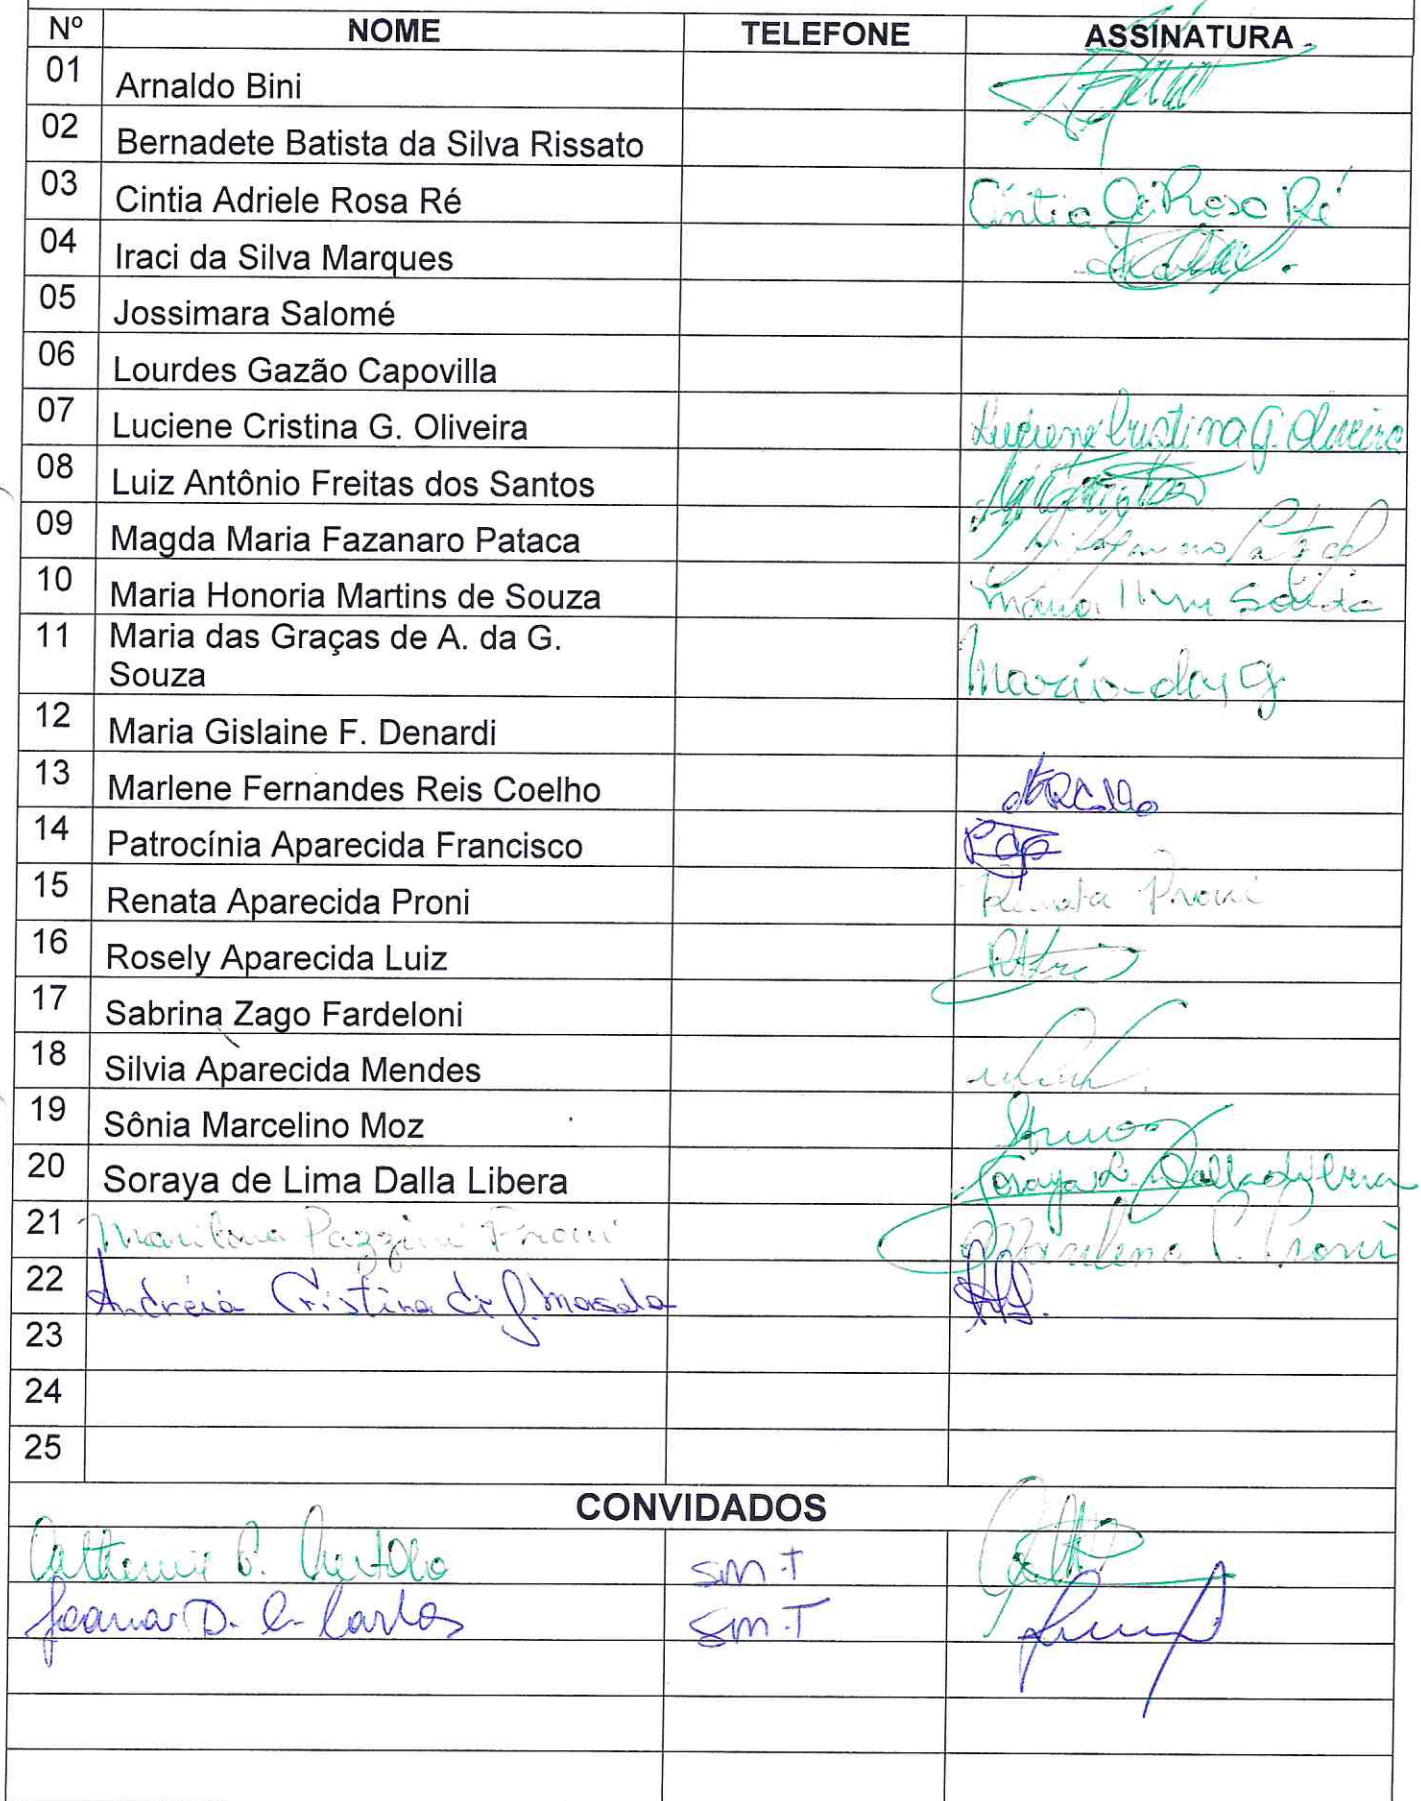 Nº NOME TELEFONE ASSINATURA
01 Arnaldo Bini
02 Bernadete Batista da Silva Rissato
03 Cintia Adriele Rosa Ré Cíntia Rosa Ré
04 Iraci da Silva Marques
05 Jossimara Salomé
06 Lourdes Gazão Capovilla
07 Luciene Cristina G. Oliveira Luciene Cristina G. Oliveira
08 Luiz Antônio Freitas dos Santos
09 Magda Maria Fazanaro Pataca
10 Maria Honoria Martins de Souza Maria Souza
11 Maria das Graças de A. da G.
Souza Maria das G
12 Maria Gislaine F. Denardi
13 Marlene Fernandes Reis Coelho
14 Patrocínia Aparecida Francisco
15 Renata Aparecida Proni Renata Proni
16 Rosely Aparecida Luiz
17 Sabrina Zago Fardeloni
18 Silvia Aparecida Mendes
19 Sônia Marcelino Moz
20 Soraya de Lima Dalla Libera Soraya L. Dalla Libera
21 Marilena Pazzini Proni Marilena P. Proni
22 Andréia Cristina
23
24
25
CONVIDADOS
C. SM.T
D. Carlos SM.T